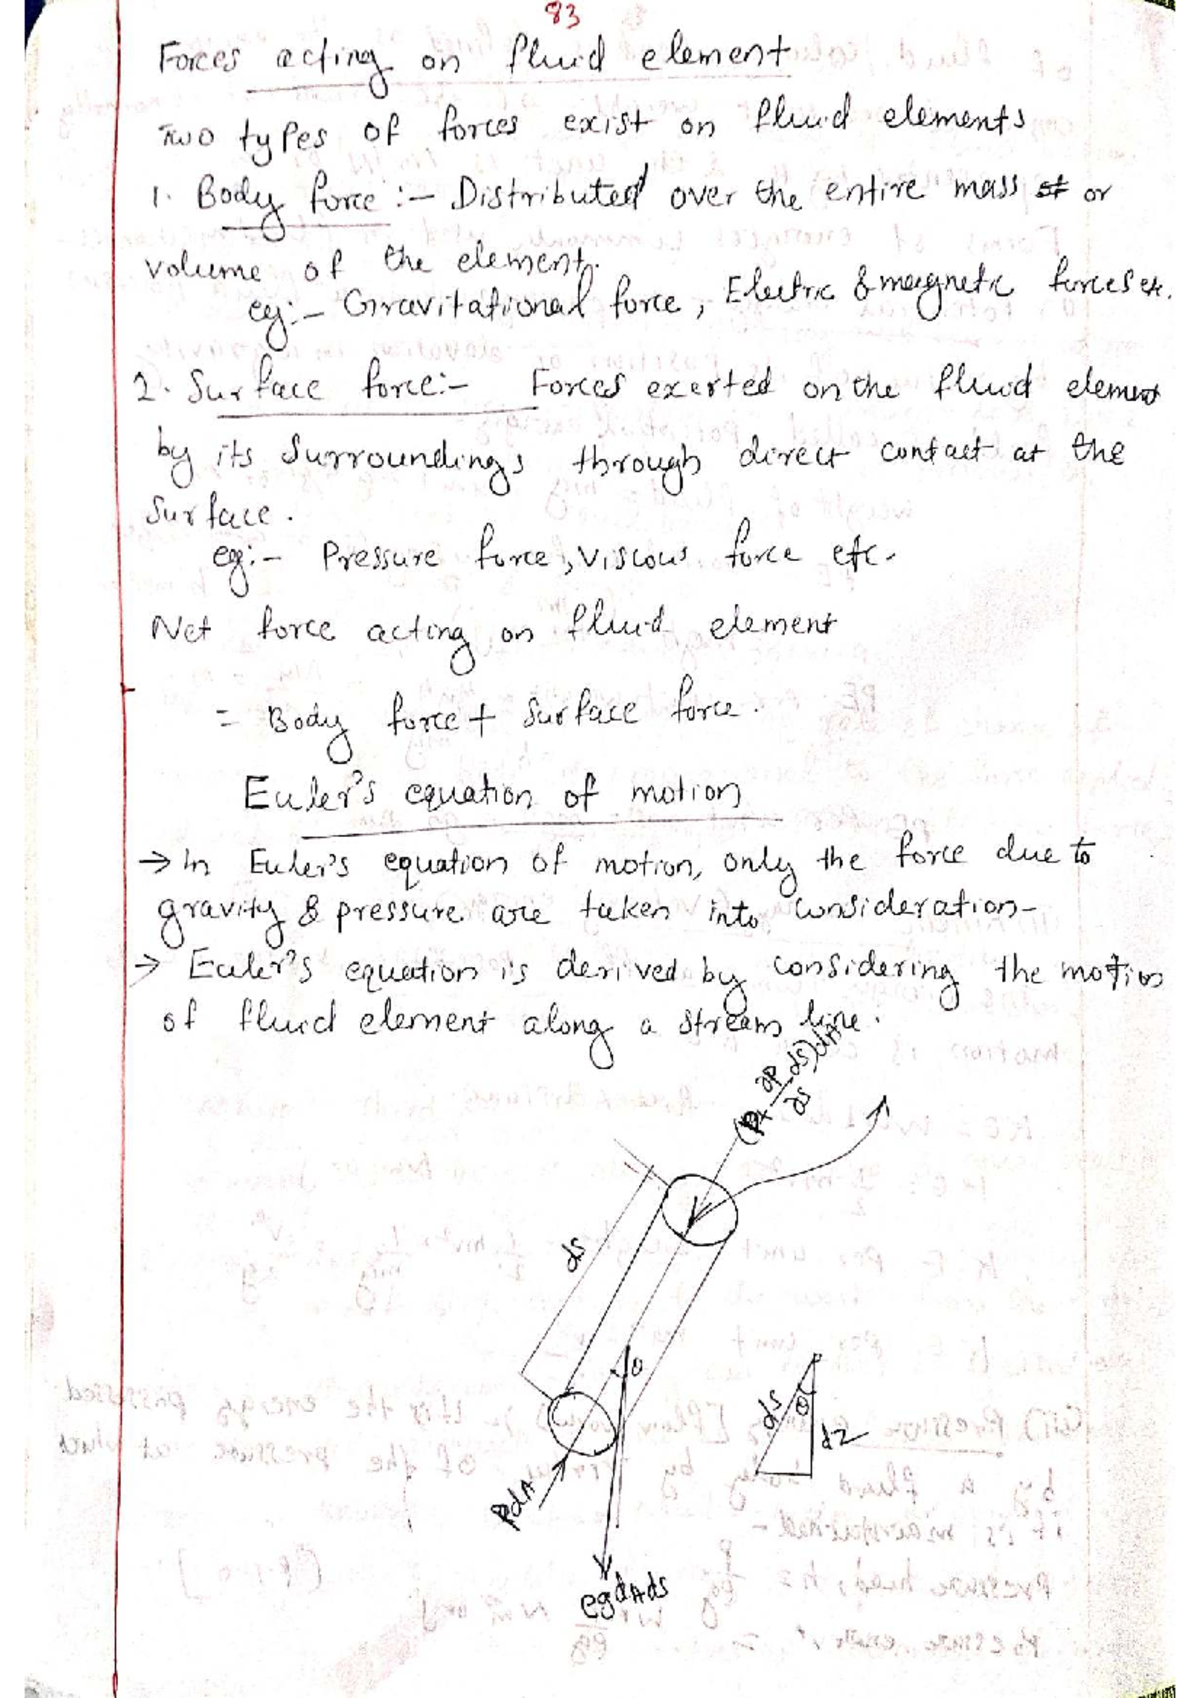 83
Forces acting on fluid element
Two types of forces exist on fluid elements
1. Body force :- Distributed over the entire mass or
volume of the element.
eg:- Gravitational force, Electric & magnetic forces etc.
2. Surface force:- Forces exerted on the fluid element
by its Surroundings through direct contact at the
Surface.
eg:- Pressure force, Viscous force etc.
Net force acting on fluid element
= Body force + Surface force.
Euler's equation of motion
→ In Euler's equation of motion, only the force due to
gravity & pressure are taken into consideration-
→ Euler's equation is derived by considering the motion
of fluid element along a stream line.
(P+ ∂P/∂s ds)dA
ds
θ
ds
θ
dz
PdA
ρgdAds